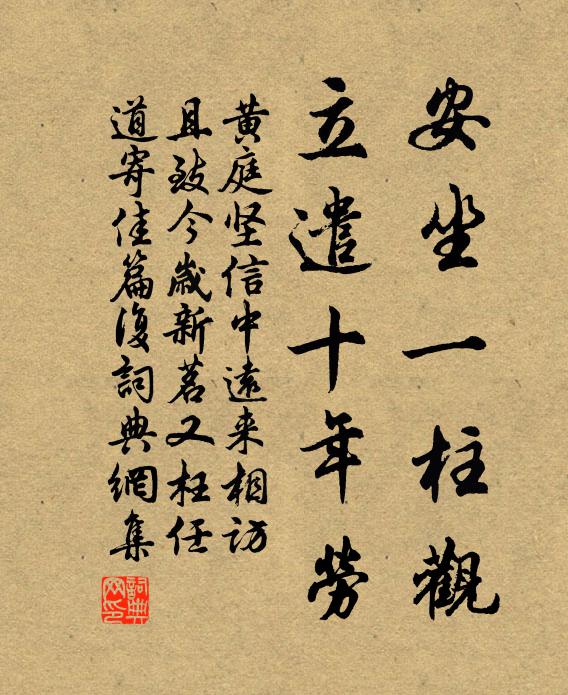 安坐一柱觀
立遣十年勞
黄庭坚信中遠来相訪
且致今歲新茗又枉任
道寄佳篇復詞典網集
詞典网印